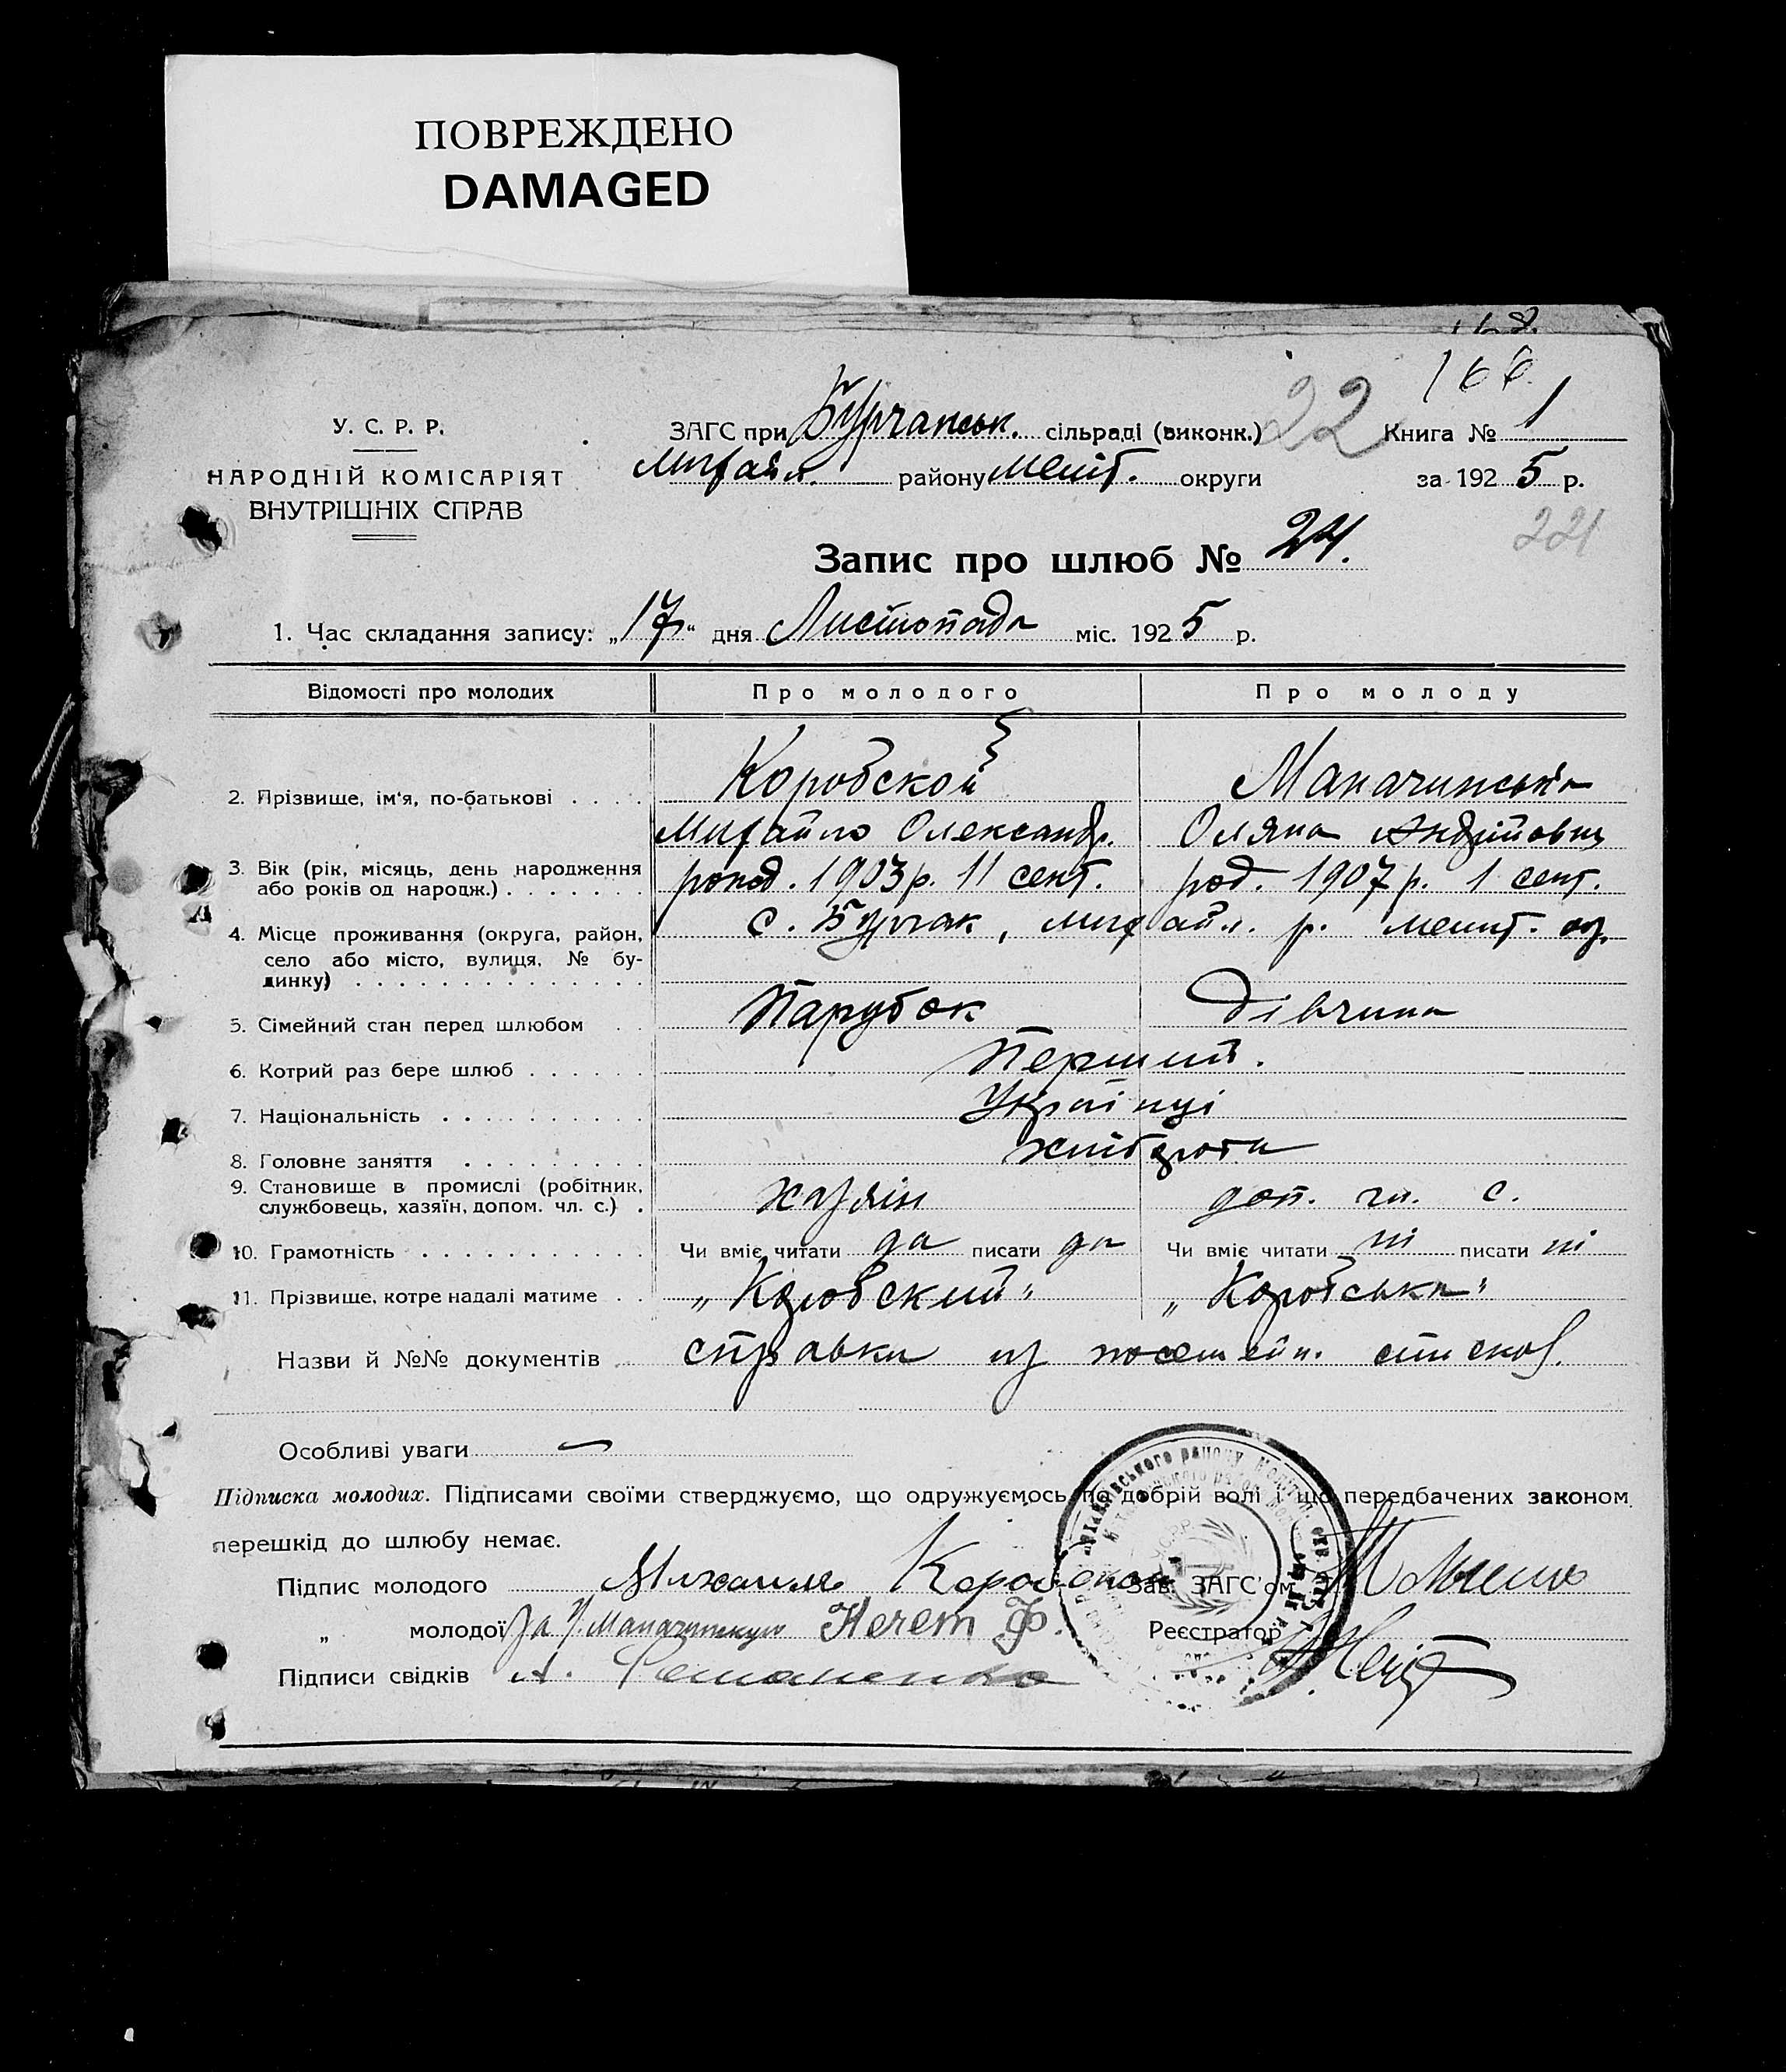 ПОВРЕЖДЕНО
DAMAGED
166.
У. С. Р. Р.
НАРОДНІЙ КОМІСАРІЯТ
ВНУТРІШНІХ СПРАВ
ЗАГС при Бурчанськ. сільраді (виконк.) 22 Книга № 1
Михайл. району Меліт. округи за 1925 р.
221
Запис про шлюб № 24.
1. Час складання запису: „17“ дня Листопада міс. 1925 р.
Відомості про молодих Про молодого Про молоду
2. Прізвище, ім'я, по-батькові . . . . Коробской Маначинська
Михайло Олександр. Оляна Андрійовна
3. Вік (рік, місяць, день народження
або років од народж.) . . . . . . . 1903 р. 11 сент. род. 1907 р. 1 сент.
4. Місце проживання (округа, район, с. Бурчак, Михайл. р. Меліт. ок.
село або місто, вулиця, № бу-
динку) . . . . . . . . . . . . . .
5. Сімейний стан перед шлюбом . . Парубок дівчина
6. Котрий раз бере шлюб . . . . . . Перший.
7. Національність . . . . . . . . . . Українці
8. Головне заняття . . . . . . . . . хліборобта
9. Становище в промислі (робітник,
службовець, хазяїн, допом. чл. с.) . хазяїн доп. чл. с.
10. Грамотність . . . . . . . . . . . Чи вміє читати да писати да Чи вміє читати ні писати ні
11. Прізвище, котре надалі матиме . . „Коробский“ „Коробська“
Назви й №№ документів справка из посемейн. списков.
Особливі уваги —
Підписка молодих. Підписами своїми стверджуємо, що одружуємось по добрій волі і що передбачених законом
перешкід до шлюбу немає.
Підпис молодого Михаил Коробской Зав. ЗАГС'ом
„ молодої За Маначинскую Нечет Ф. Реєстратор
Підписи свідків А.